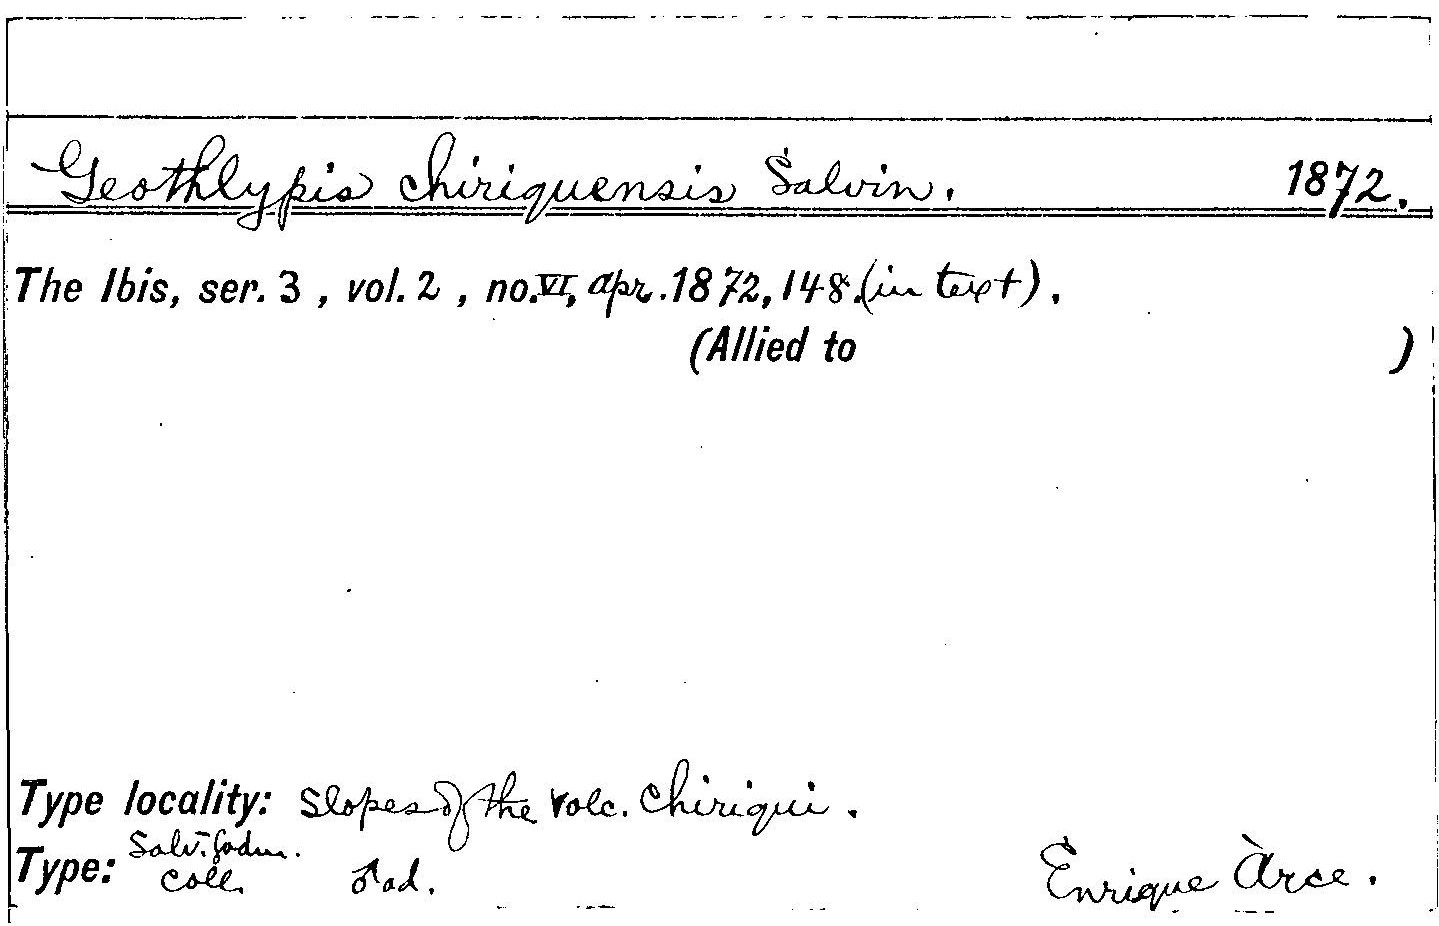 Geothlypis chiriquensis Salvin. 1872.
The Ibis, ser. 3, vol. 2, no. VI, apr. 1872, 148. (in text).
(Allied to )
Type locality: Slopes of the Volc. Chiriqui.
Salv.-Godm.
Type: Coll. ♂ ad. Enrique Arce.